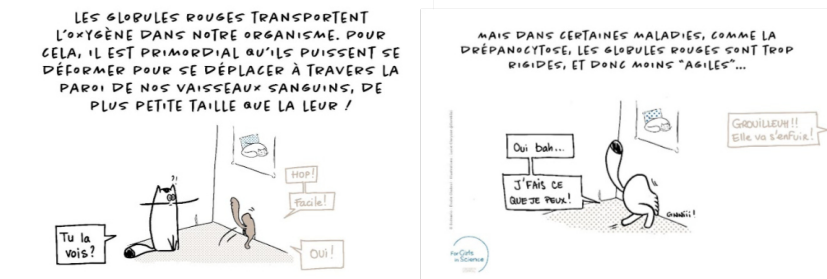 LES GLOBULES ROUGES TRANSPORTENT
L'OXYGÈNE DANS NOTRE ORGANISME. POUR
CELA, IL EST PRIMORDIAL QU'ILS PUISSENT SE
DÉFORMER POUR SE DÉPLACER À TRAVERS LA
PAROI DE NOS VAISSEAUX SANGUINS, DE
PLUS PETITE TAILLE QUE LA LEUR !
?!
HOP!
Facile!
Tu la
vois?
Oui!
MAIS DANS CERTAINES MALADIES, COMME LA
DRÉPANOCYTOSE, LES GLOBULES ROUGES SONT TROP
RIGIDES, ET DONC MOINS "AGILES"...
GROUILLEUH!!
Elle va s'enfuir!
Oui bah...
J'FAIS CE
QUE JE PEUX!
GNNiii!
For Cats
in Science